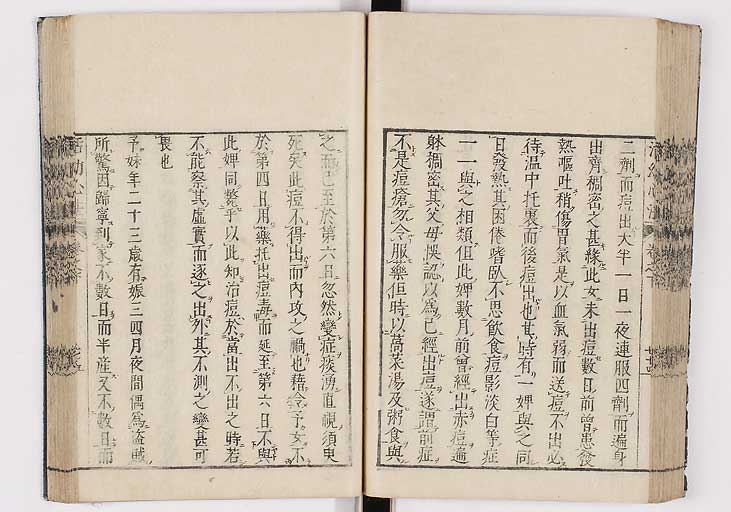 二劑而痘出大半一日一夜連服四劑而遍身
出齊稠密之甚緣此女未出痘數日前曾患發
熱嘔吐稍傷胃氣是以血氣弱而送痘不出必
待溫中托裏而後痘出也其時有一婢與之同
日發熱其困倦嗜臥不思飲食痘影淡白等症
一一與之相類但此婢數月前曾經出赤痘遍
躰稠密其父母悞認以為已經出痘遂謂前症
不是痘瘡勿令服藥但時以萵菜湯及粥食與
之而已至於第六日忽然變症痰湧直視須臾
死矣此痘不得出而內攻之禍也藉令予女不
於第四日用藥托出痘毒而延至第六日不與
此婢同斃乎以此知治痘於當出不出之時若
不能察其虛實而逐之出外其不測之變甚可
畏也
予妹年二十三歲有娠三四月夜間偶為盜賊
所驚因歸寧到家不數日而半産又不數日而